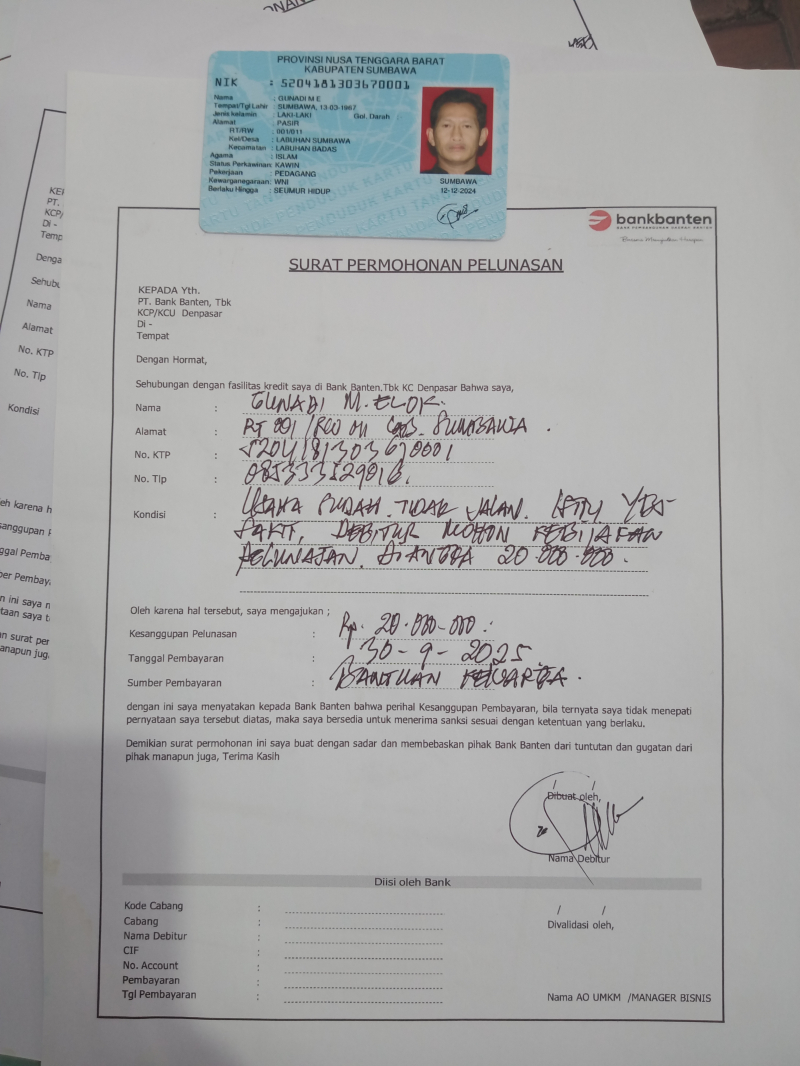 PROVINSI NUSA TENGGARA BARAT
KABUPATEN SUMBAWA
NIK : 5204181303670001
Nama : GUNADI M E
Tempat/Tgl Lahir : SUMBAWA, 13-03-1967
Jenis kelamin : LAKI-LAKI Gol. Darah
Alamat : PASIR
RT/RW : 001/011
Kel/Desa : LABUHAN SUMBAWA
Kecamatan : LABUHAN BADAS
Agama : ISLAM
Status Perkawinan: KAWIN
Pekerjaan : PEDAGANG
Kewarganegaraan: WNI
Berlaku Hingga : SEUMUR HIDUP
SUMBAWA
12-12-2024
bankbanten
SURAT PERMOHONAN PELUNASAN
KEPADA Yth.
PT. Bank Banten, Tbk
KCP/KCU Denpasar
Di -
Tempat
Dengan Hormat,
Sehubungan dengan fasilitas kredit saya di Bank Banten.Tbk KC Denpasar Bahwa saya,
Nama : GUNADI M. ELOK.
Alamat : RT 001 / RW 011 SUMBAWA .
No. KTP : 5204181303670001
No. Tlp : 085333529016.
Kondisi : USAHA SUDAH TIDAK JALAN.
SAKIT, DEBITUR MOHON KEBIJAKAN
PELUNASAN. DIANGKA 20.000.000.
Oleh karena hal tersebut, saya mengajukan ;
Kesanggupan Pelunasan : Rp. 20.000.000.
Tanggal Pembayaran : 30-9-2025.
Sumber Pembayaran : BANTUAN KELUARGA.
dengan ini saya menyatakan kepada Bank Banten bahwa perihal Kesanggupan Pembayaran, bila ternyata saya tidak menepati
pernyataan saya tersebut diatas, maka saya bersedia untuk menerima sanksi sesuai dengan ketentuan yang berlaku.
Demikian surat permohonan ini saya buat dengan sadar dan membebaskan pihak Bank Banten dari tuntutan dan gugatan dari
pihak manapun juga, Terima Kasih
/ /
Dibuat oleh,
Nama Debitur
Diisi oleh Bank
Kode Cabang :
Cabang :
Nama Debitur :
CIF :
No. Account :
Pembayaran :
Tgl Pembayaran :
/ /
Divalidasi oleh,
Nama AO UMKM /MANAGER BISNIS